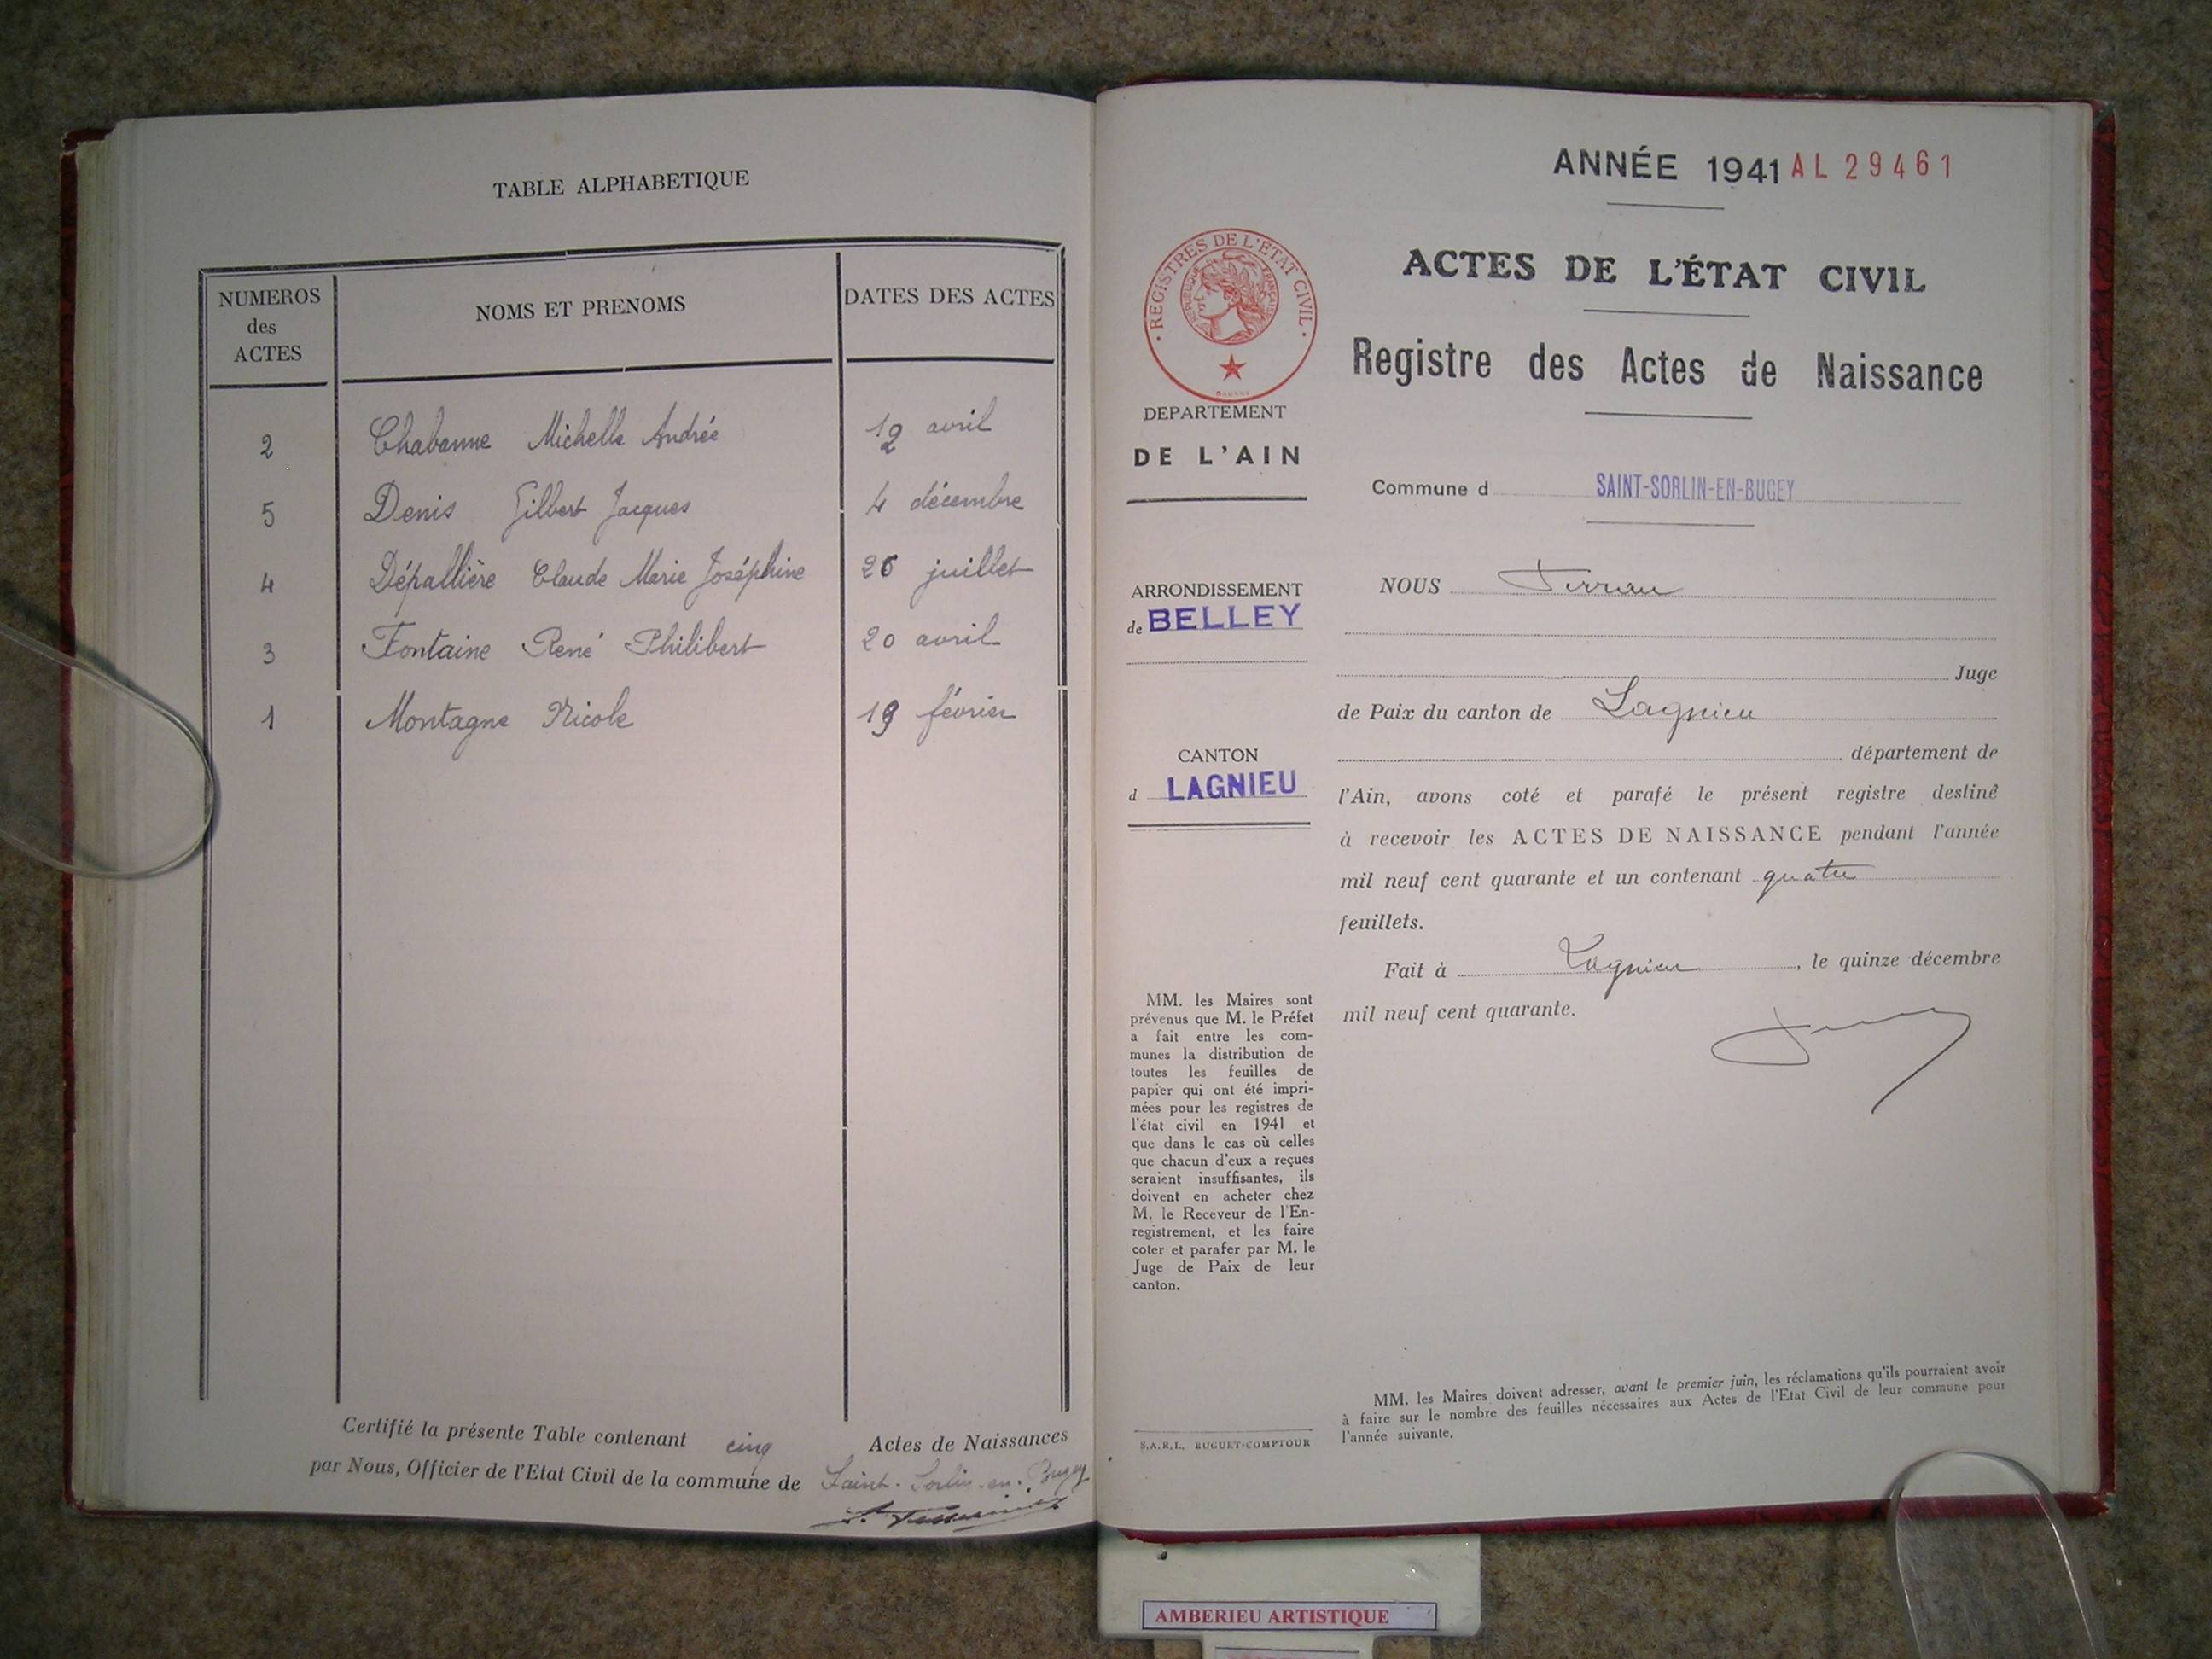 TABLE ALPHABETIQUE
NUMEROS des ACTES
NOMS ET PRENOMS
DATES DES ACTES
2 Chabanne Michelle André 12 avril
5 Denis Gilbert Jacques 4 décembre
4 Dépallière Claude Marie Joséphine 26 juillet
3 Fontaine René Philibert 20 avril
1 Montagne Nicole 19 février
Certifié la présente Table contenant cinq Actes de Naissances
par Nous, Officier de l'Etat Civil de la commune de Saint-Sorlin-en-Bugey
ANNÉE 1941 AL 29461
REGISTRES DE L'ÉTAT CIVIL
RÉPUBLIQUE FRANÇAISE
ACTES DE L'ÉTAT CIVIL
Registre des Actes de Naissance
DEPARTEMENT
DE L'AIN
Commune d SAINT-SORLIN-EN-BUGEY
ARRONDISSEMENT
de BELLEY
CANTON
d LAGNIEU
NOUS
Juge
de Paix du canton de Lagnieu
département de
l'Ain, avons coté et parafé le présent registre destiné
à recevoir les ACTES DE NAISSANCE pendant l'année
mil neuf cent quarante et un contenant quatre
feuillets.
Fait à Lagnieu, le quinze décembre
mil neuf cent quarante.
MM. les Maires sont
prévenus que M. le Préfet
a fait entre les com-
munes la distribution de
toutes les feuilles de
papier qui ont été impri-
mées pour les registres de
l'état civil en 1941 et
que dans le cas où celles
que chacun d'eux a reçues
seraient insuffisantes, ils
doivent en acheter chez
M. le Receveur de l'En-
registrement, et les faire
coter et parafer par M. le
Juge de Paix de leur
canton.
S.A.R.L. BUGUET-COMPTOUR
MM. les Maires doivent adresser, avant le premier juin, les réclamations qu'ils pourraient avoir
à faire sur le nombre des feuilles nécessaires aux Actes de l'Etat Civil de leur commune pour
l'année suivante.
AMBERIEU ARTISTIQUE